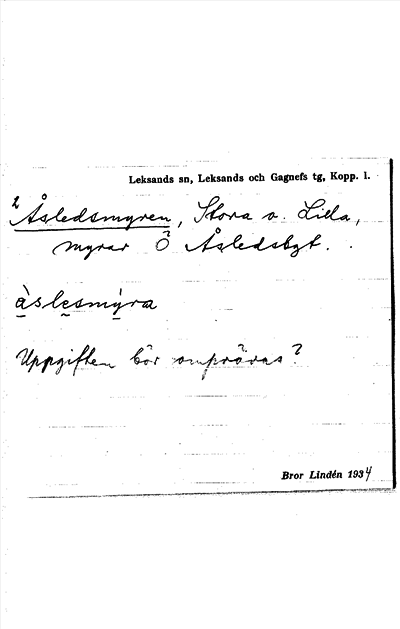 Leksands sn, Leksands och Gagnefs tg, Kopp. l.
2 Åsledsmyren, Stora o. Lilla,
myrar Ö Åsledsbgt.
àslesmỳra
Uppgiften bör omprövas?
Bror Lindén 1934